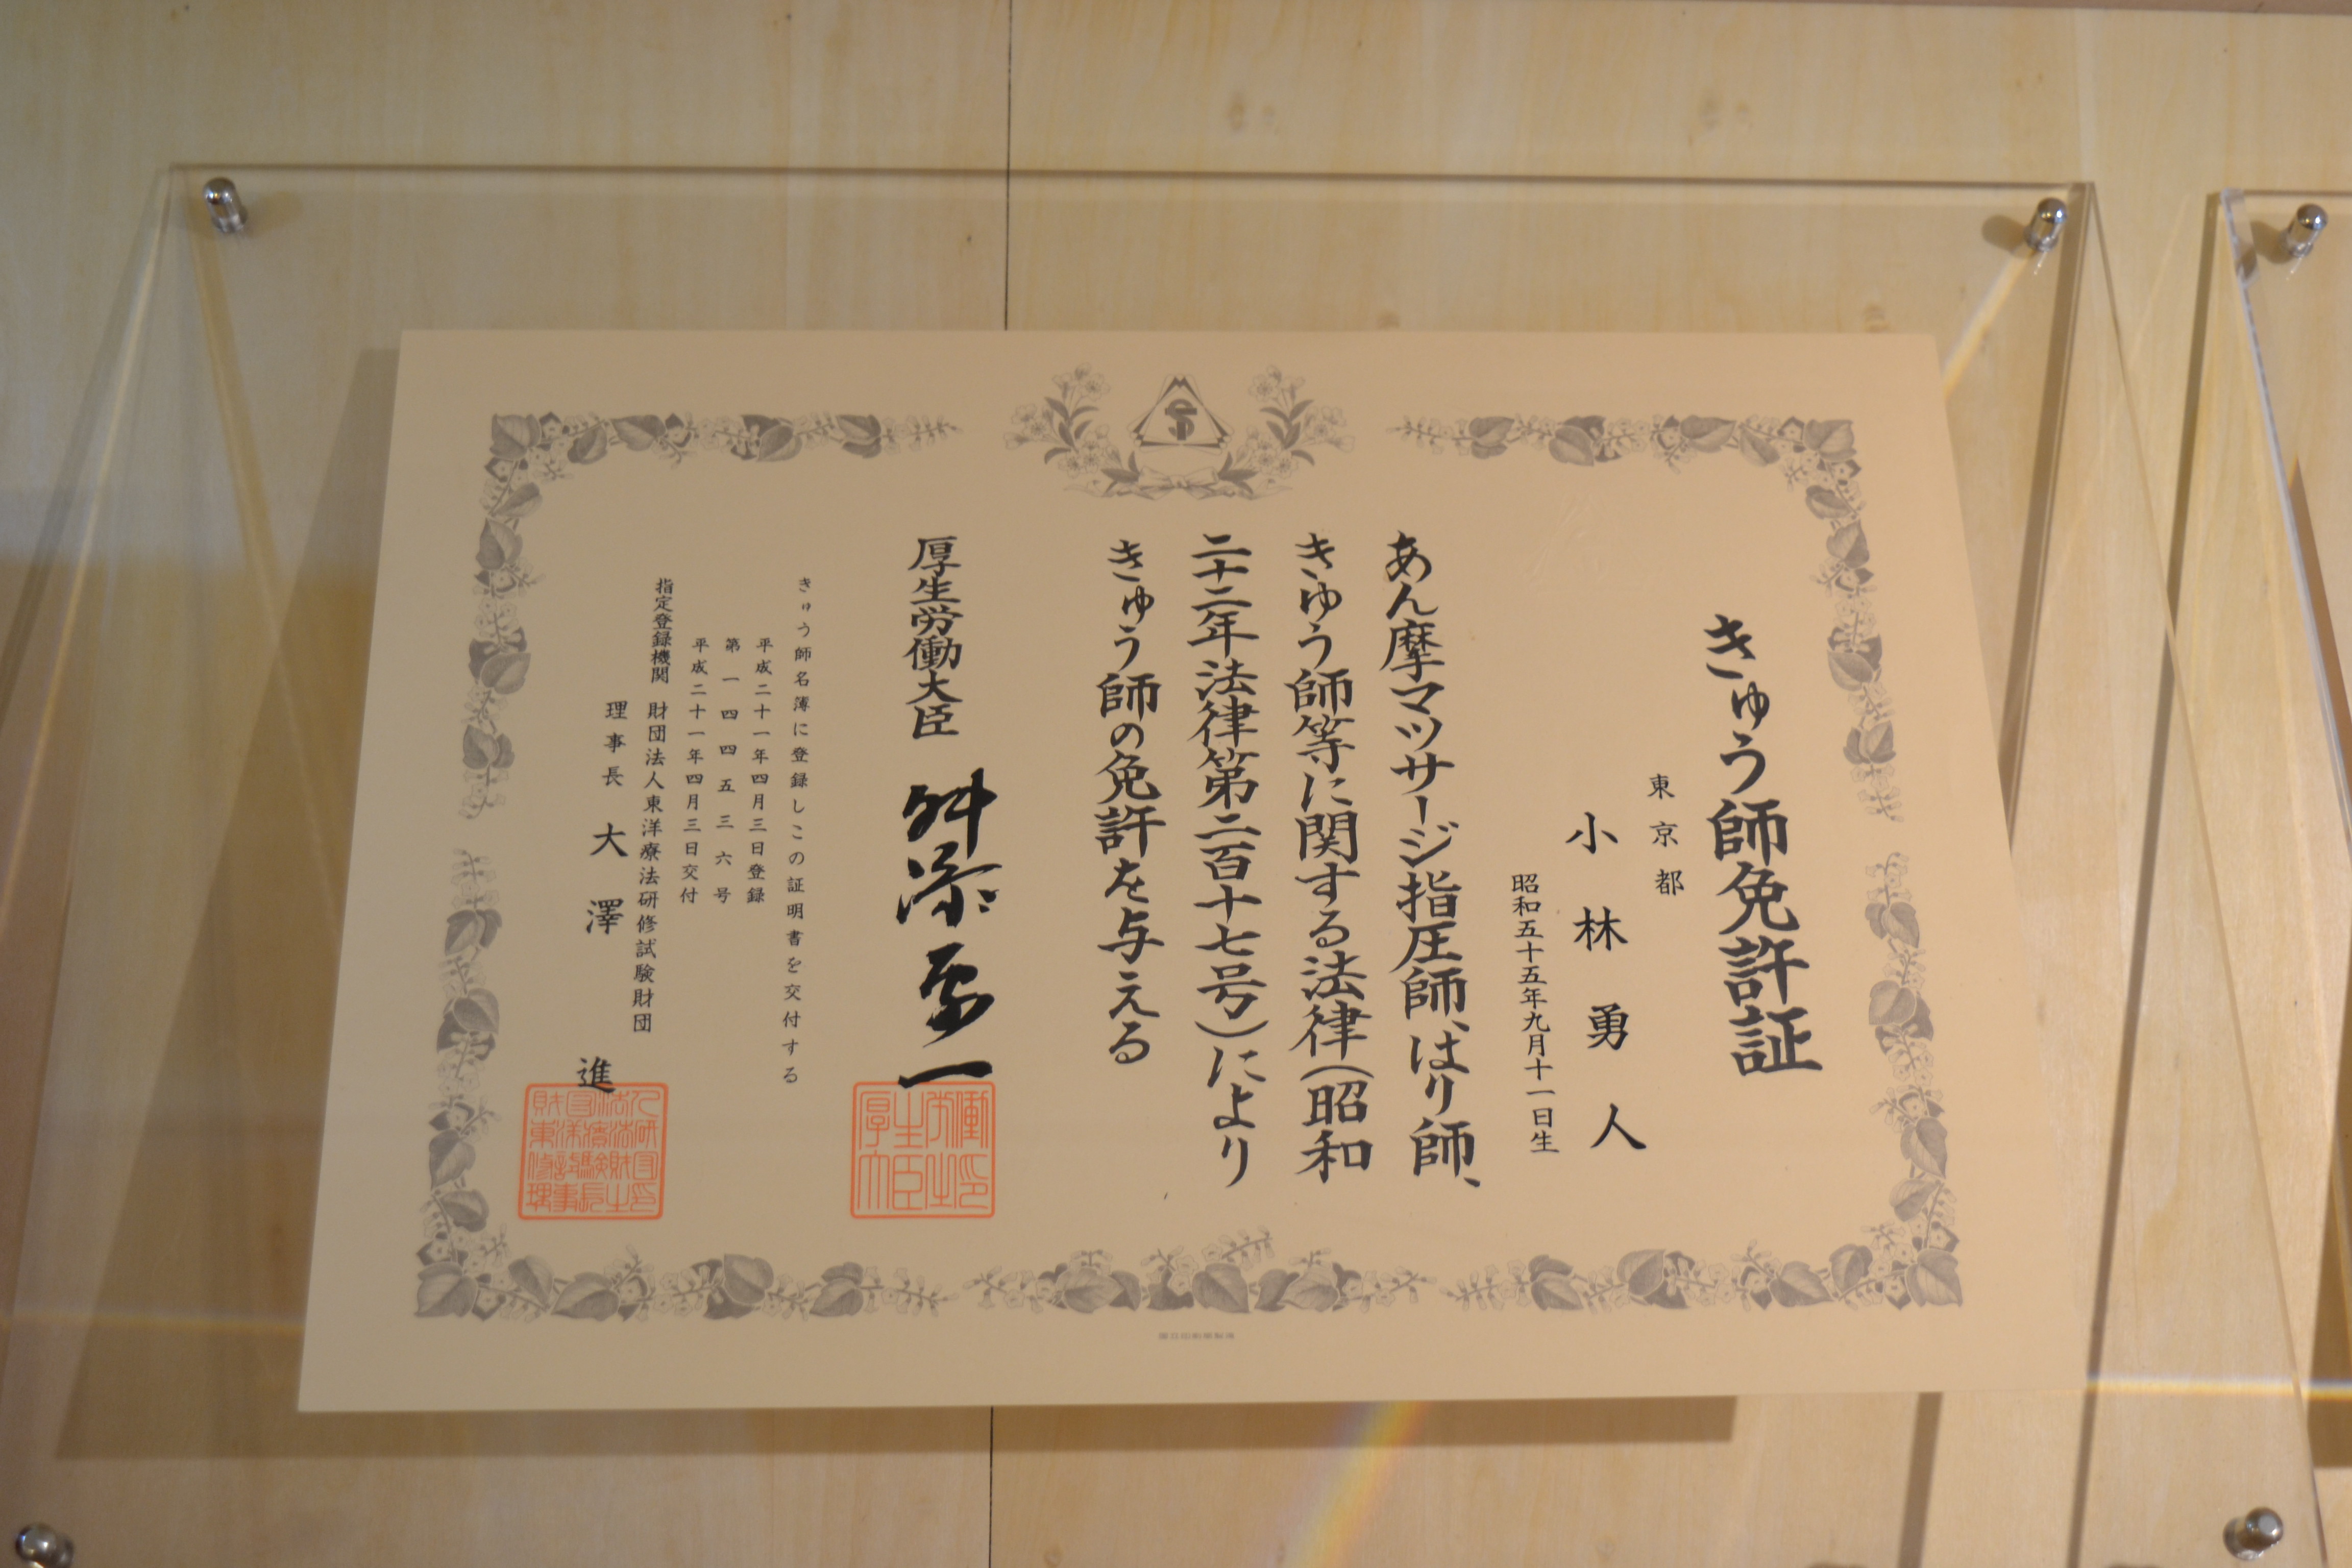 きゅう師免許証
東京都
小林勇人
昭和五十五年九月十一日生
あん摩マツサージ指圧師、はり師、
きゅう師等に関する法律(昭和
二十二年法律第二百十七号)により
きゅう師の免許を与える
厚生労働大臣 舛添要一
きゅう師名簿に登録しこの証明書を交付する
平成二十一年四月三日登録
第一四四五三六号
平成二十一年四月三日交付
指定登録機関 財団法人東洋療法研修試験財団
理事長 大澤進